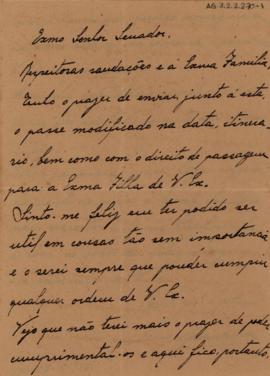 AG 3.2.2.2?0-1
Exmo Senhor Senador.
Respeitosas saudações e á Exma Familia,
Tenho o prazer de enviar, junto á esta,
o passe modificado na data, itinera-
rio, bem como com o direito de passagem
para a Exma Filha de V. Ex.
Sinto-me feliz em ter podido ser
util em cousas tão sem importancia
e o serei sempre que pouder cumprir
qualquer ordem de V. Ex.
Vejo que não terei mais o prazer de poder
cumprimental-os e aqui fico, portanto,